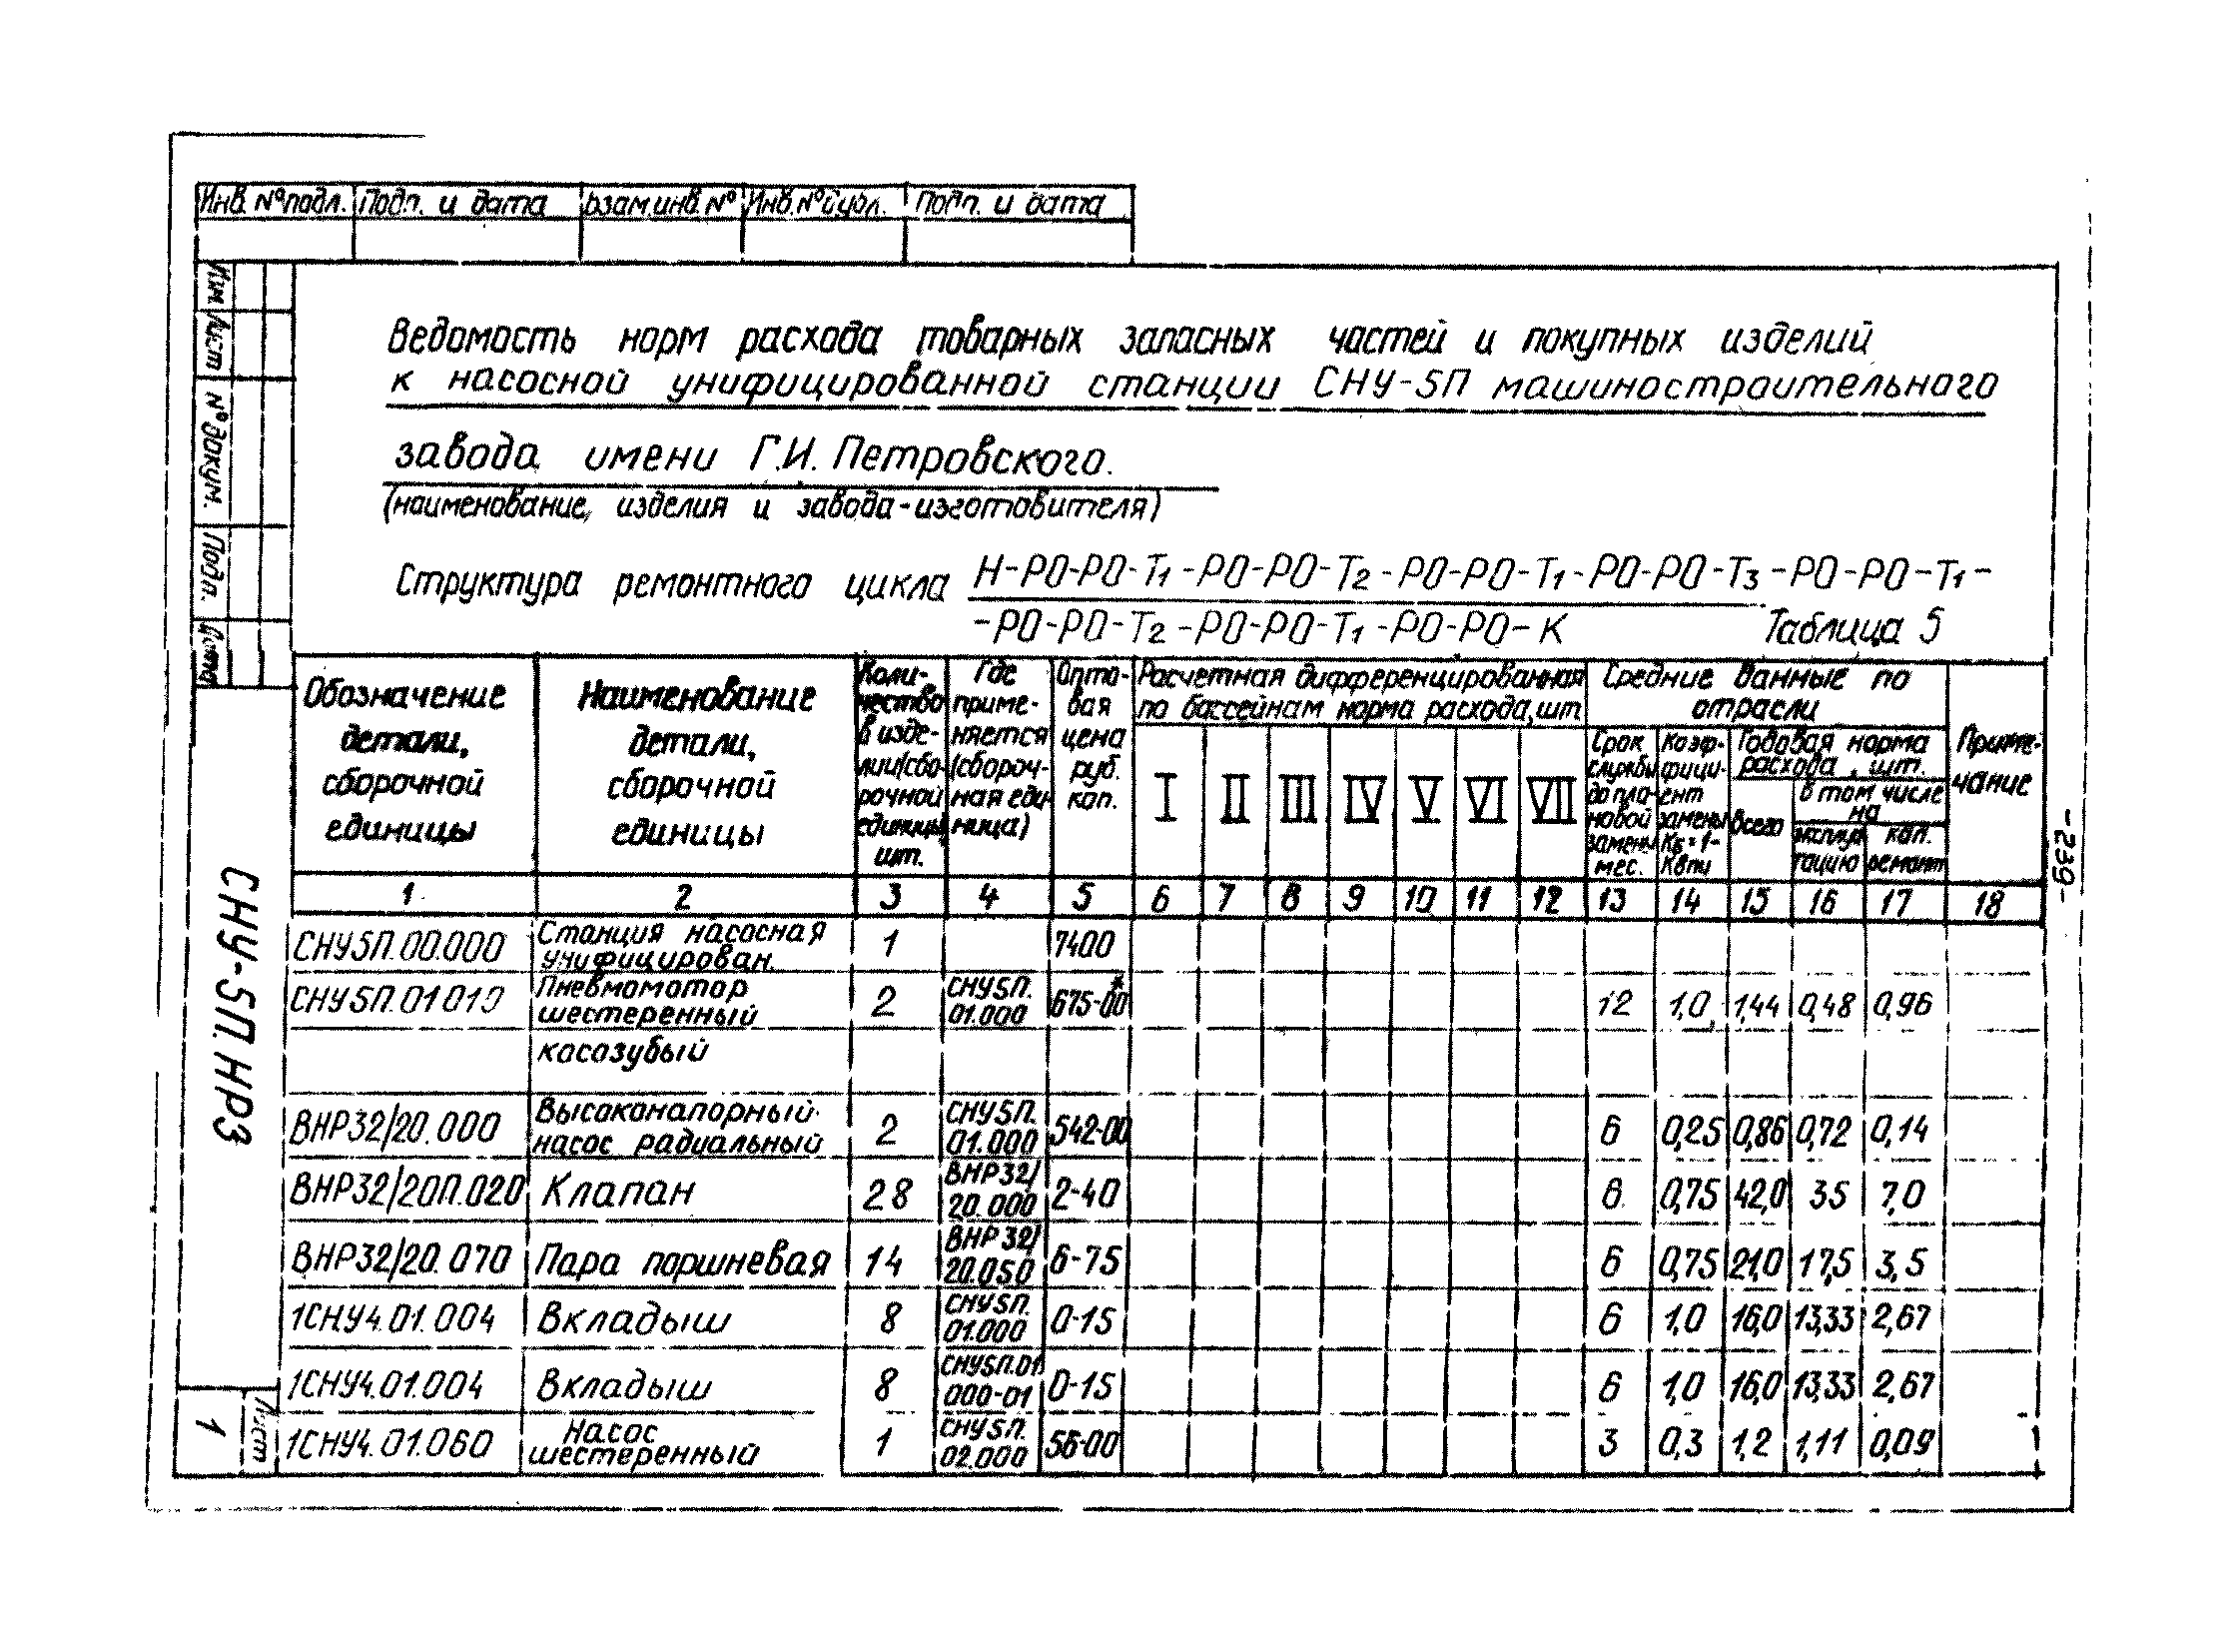 Инв. № подл. Подп. и дата Взам.инв.№ Инв.№ дубл. Подп. и дата
Изм. Лист № докум. Подп. Дата
Ведомость норм расхода товарных запасных частей и покупных изделий
к насосной унифицированной станции СНУ-5П машиностроительного
завода имени Г.И. Петровского.
(наименование, изделия и завода-изготовителя)
Структура ремонтного цикла Н-РО-РО-Т1-РО-РО-Т2-РО-РО-Т1-РО-РО-Т3-РО-РО-Т1-
-РО-РО-Т2-РО-РО-Т1-РО-РО-К Таблица 5
Обозначение детали, сборочной единицы
Наименование детали, сборочной единицы
Количество в изделии (сборочной единицы, шт.
Где применяется (сборочная единица)
Оптовая цена руб. коп.
Расчетная дифференцированная по бассейнам норма расхода, шт
I II III IV V VI VII
Средние данные по отрасли
Срок службы до плановой замены мес.
Коэффициент замены Кб=1-Квпи
Годовая норма расхода, шт.
всего
в том числе на
эксплуатацию
кап. ремонт
Примечание
1 2 3 4 5 6 7 8 9 10 11 12 13 14 15 16 17 18
СНУ5П.00.000 Станция насосная унифицирован. 1 7400
СНУ5П.01010 Пневмомотор шестеренный 2 СНУ5П. 01.000 675-00* 12 1,0 1,44 0,48 0,96
косозубый
ВНР32/20.000 Высоконапорный насос радиальный 2 СНУ5П. 01.000 542-00 6 0,25 0,86 0,72 0,14
ВНР32/20П.020 Клапан 28 ВНР32/ 20.000 2-40 6 0,75 42,0 35 7,0
ВНР32/20.070 Пара поршневая 14 ВНР32/ 20.050 6-75 6 0,75 21,0 17,5 3,5
1СНУ4.01.004 Вкладыш 8 СНУ5П. 01.000 0-15 6 1,0 16,0 13,33 2,67
1СНУ4.01.004 Вкладыш 8 СНУ5П.01 000-01 0-15 6 1,0 16,0 13,33 2,67
1СНУ4.01.060 Насос шестеренный 1 СНУ5П. 02.000 56-00 3 0,3 1,2 1,11 0,09
СНУ-5П.НРЗ
Лист
1
-239-